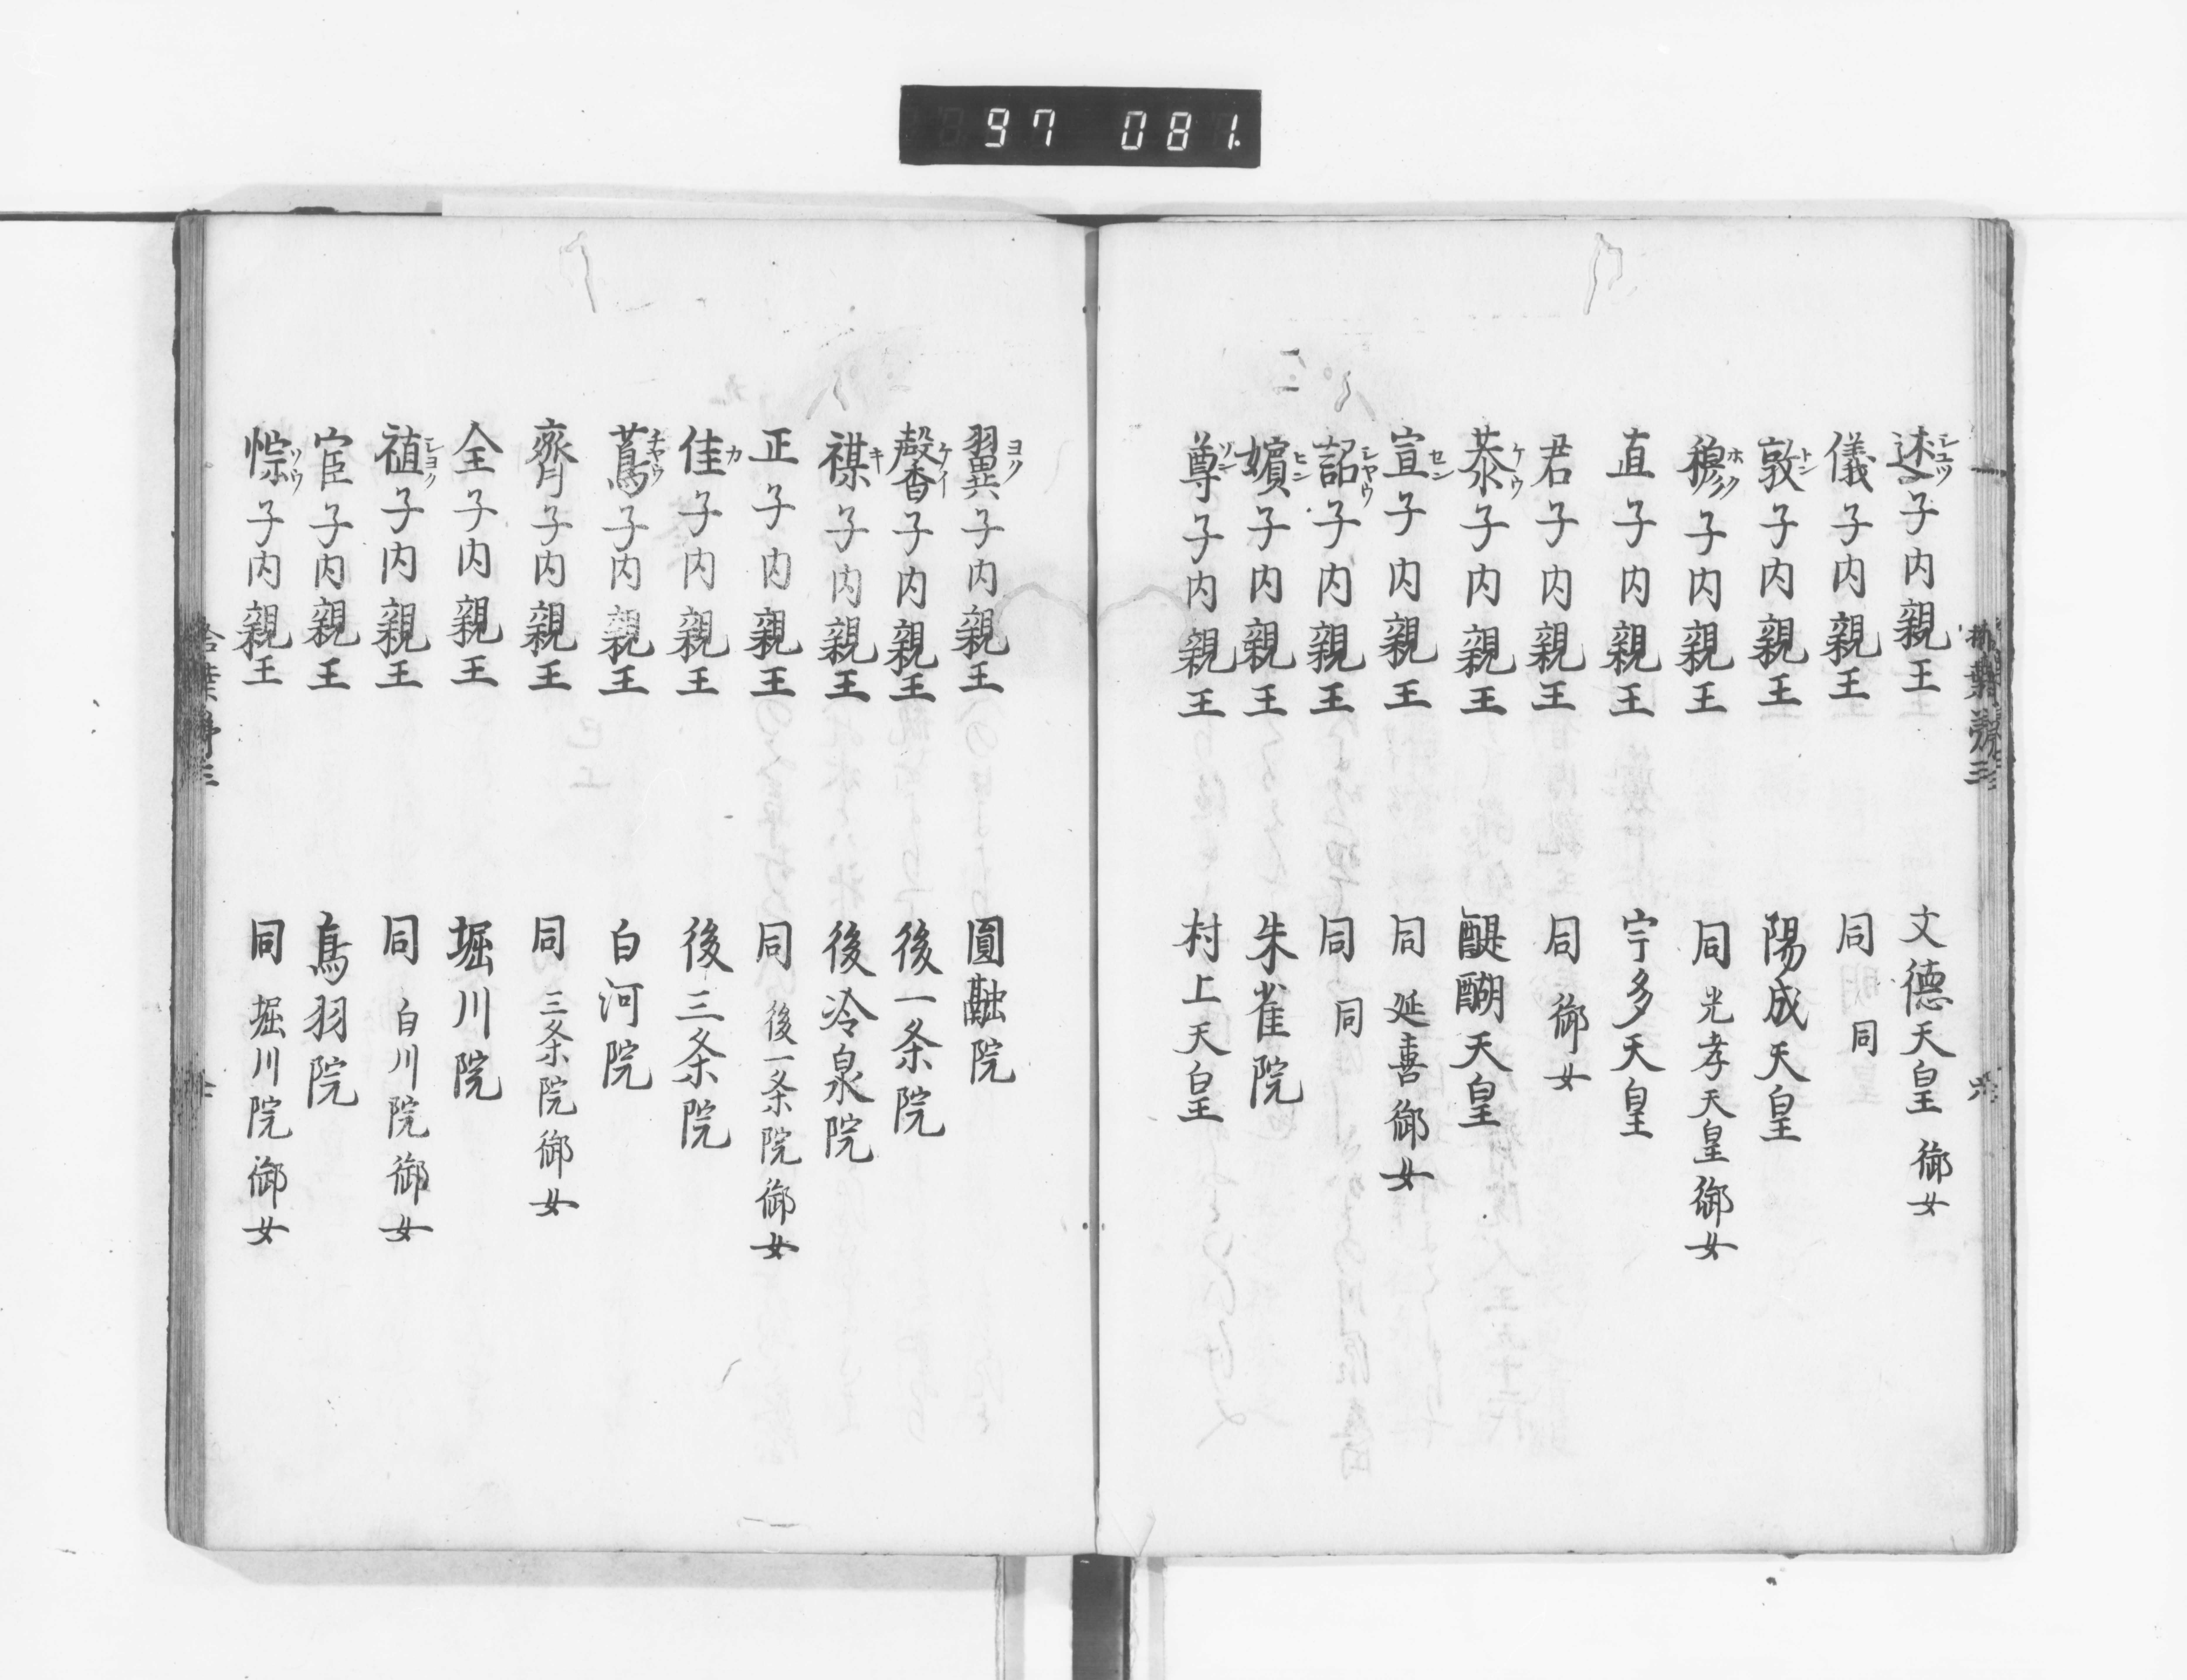 97 081
述シユツ子内親王 文徳天皇 御女
儀子内親王 同 同
敦トン子内親王 陽成天皇
穆ホク子内親王 同 光孝天皇御女
直子内親王 宇多天皇
君子内親王 同 御女
恭ケウ子内親王 醍醐天皇
宣セン子内親王 同 延喜御女
詔シヤウ子内親王 同 同
嬪ヒン子内親王 朱雀院
尊ソン子内親王 村上天皇
翼ヨク子内親王 圓融院
馨ケイ子内親王 後一条院
禖キ子内親王 後冷泉院
正子内親王 同 後一条院御女
佳カ子内親王 後三条院
蔦チヤウ子内親王 白河院
齊子内親王 同 三条院御女
全子内親王 堀川院
禃シヨク子内親王 同 白川院御女
宦子内親王 鳥羽院
悰ソウ子内親王 同 堀川院御女